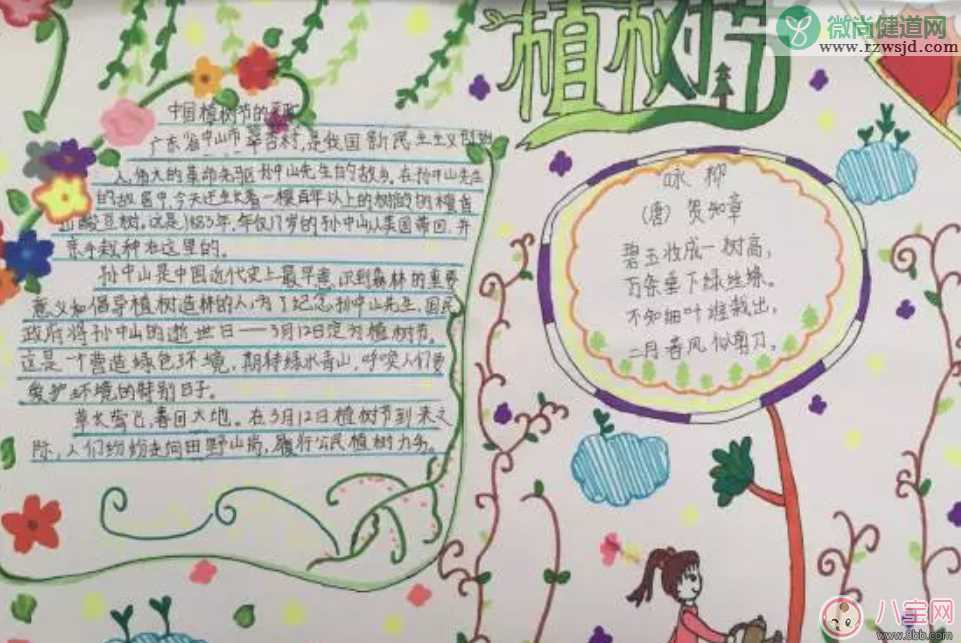 植树节
微尚健道网
www.rzwsjd.com
中国植树节的来历
广东省中山市翠亨村,是我国新民主主义
人,伟大的革命先驱孙中山先生的故乡。在孙中山先生
的故居中,今天还生长着一棵百年以上的树的的檀香
山酸豆树。这是1883年,年仅17岁的孙中山从美国带回,并
亲手栽种在这里的。
孙中山是中国近代史上最早意识到森林的重要
意义和倡导植树造林的人,为了纪念孙中山先生,国民
政府将孙中山的逝世日——3月12日定为植树节。
这是一个营造绿色环境,期待绿水青山,呼唤人们要
爱护环境的特别日子。
草长莺飞,春回大地。在3月12日植树节到来之
际,人们纷纷走向田野山岗,履行公民植树义务。
咏柳
(唐)贺知章
碧玉收成一树高,
万条垂下绿丝绦。
不知细叶谁裁出,
二月春风似剪刀。
八宝网
www.8bb.com